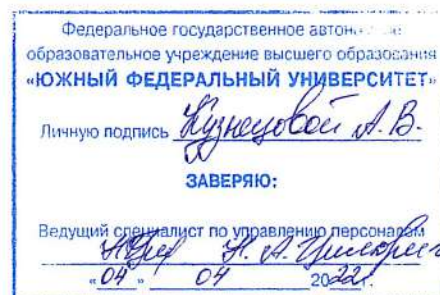 Федеральное государственное автоно
образовательное учреждение высшего образования
«ЮЖНЫЙ ФЕДЕРАЛЬНЫЙ УНИВЕРСИТЕТ»
Личную подпись Кузнецовой А.В.
ЗАВЕРЯЮ:
Ведущий специалист по управлению персоналом
Н. А.
«04» 04 2022г.